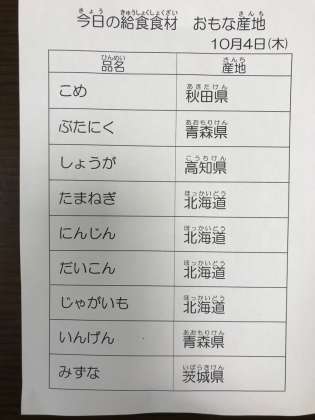 今日の給食食材　おもな産地
10月4日(木)
品名　産地
こめ　秋田県
ぶたにく　青森県
しょうが　高知県
たまねぎ　北海道
にんじん　北海道
だいこん　北海道
じゃがいも　北海道
いんげん　青森県
みずな　茨城県